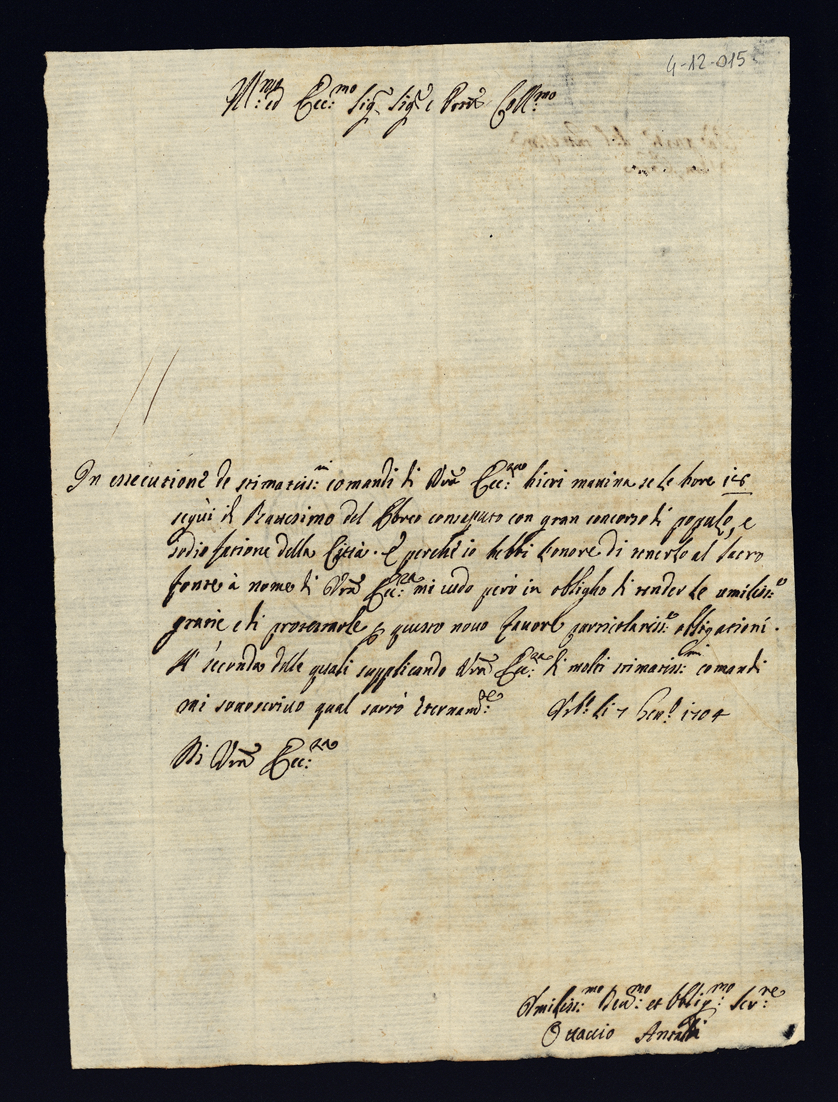 4-12-015
Ill:mo ed Ecc:mo Sig.r Sig.r e Pron.e Coll:mo
In essecutione de stimatiss:mi comandi di Vra Ecc:za hieri matina se le hore
seguì il Battesimo del Ebreo con gran concorso di popolo, e
sodisfatione della Città. E perche io hebbi l'onore di tenerlo al Sacro
fonte à nome di Vra Ecc:za mi vedo però in obligho di renderle umiliss:e
gratie e di protestarle p questo novo favore particolariss:e obligationi.
A' seconda delle quali supplicando Vra Ecc:za di molti stimatiss:mi comandi
mi sottoscrivo qual sarrò eternam:te li 7 Gen.o 1704
Di Vra Ecc:za
Umiliss:mo Deu:mo et Oblig:mo Ser:re
Ottavio Antaldi